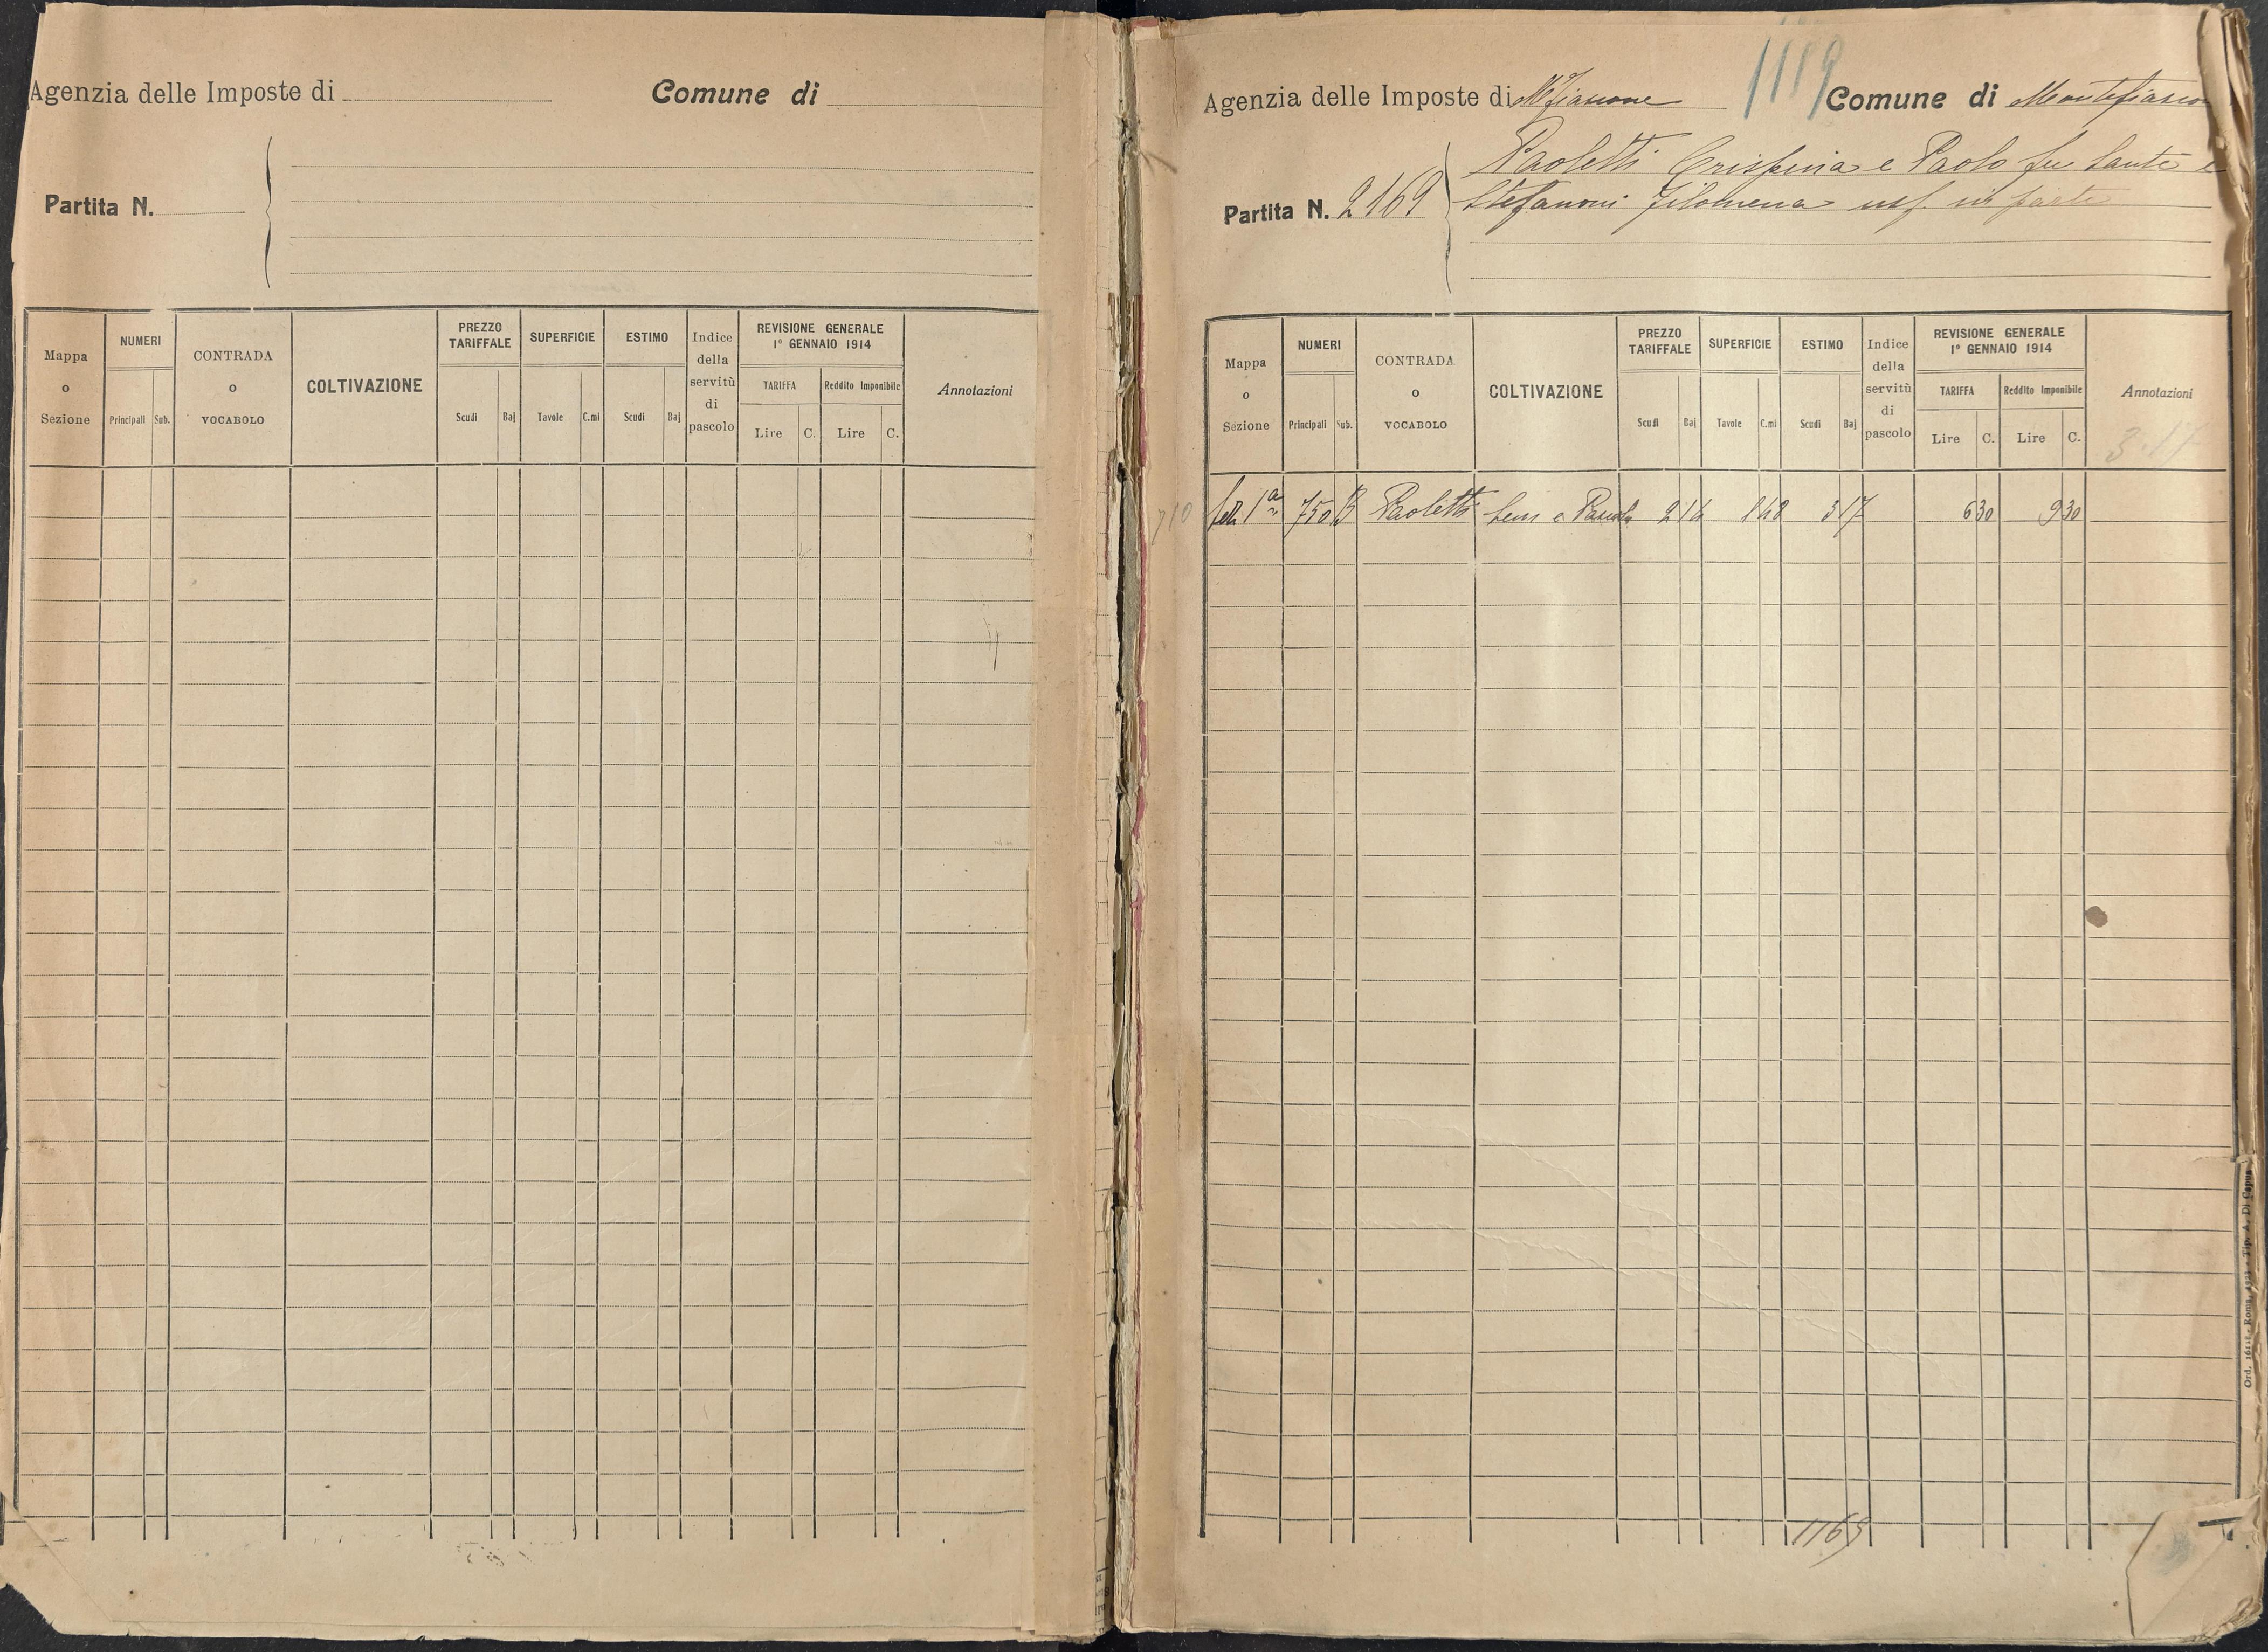 Agenzia delle Imposte di
Comune di
Partita N.
Mappa o Sezione
NUMERI
Principali Sub.
CONTRADA o VOCABOLO
COLTIVAZIONE
PREZZO TARIFFALE
Scudi Baj
SUPERFICIE
Tavole C.mi
ESTIMO
Scudi Baj
Indice della servitù di pascolo
REVISIONE GENERALE
1° GENNAIO 1914
TARIFFA
Lire C.
Reddito Imponibile
Lire C.
Annotazioni
1119
Agenzia delle Imposte di Mfiascone
Comune di Montefiascon
Partita N. 2169
Paoletti Crispina e Paolo fu Sante e
Stefanoni Filomena usf. in parte
Mappa o Sezione
NUMERI
Principali Sub.
CONTRADA o VOCABOLO
COLTIVAZIONE
PREZZO TARIFFALE
Scudi Baj
SUPERFICIE
Tavole C.mi
ESTIMO
Scudi Baj
Indice della servitù di pascolo
REVISIONE GENERALE
1° GENNAIO 1914
TARIFFA
Lire C.
Reddito Imponibile
Lire C.
Annotazioni
3.17
710 1ª 750 B Paoletti 2 14 1 48 3 17 6 30 9 30
1169
Ord. 1611 - Roma, 1923 - Tip. A. Di Capua